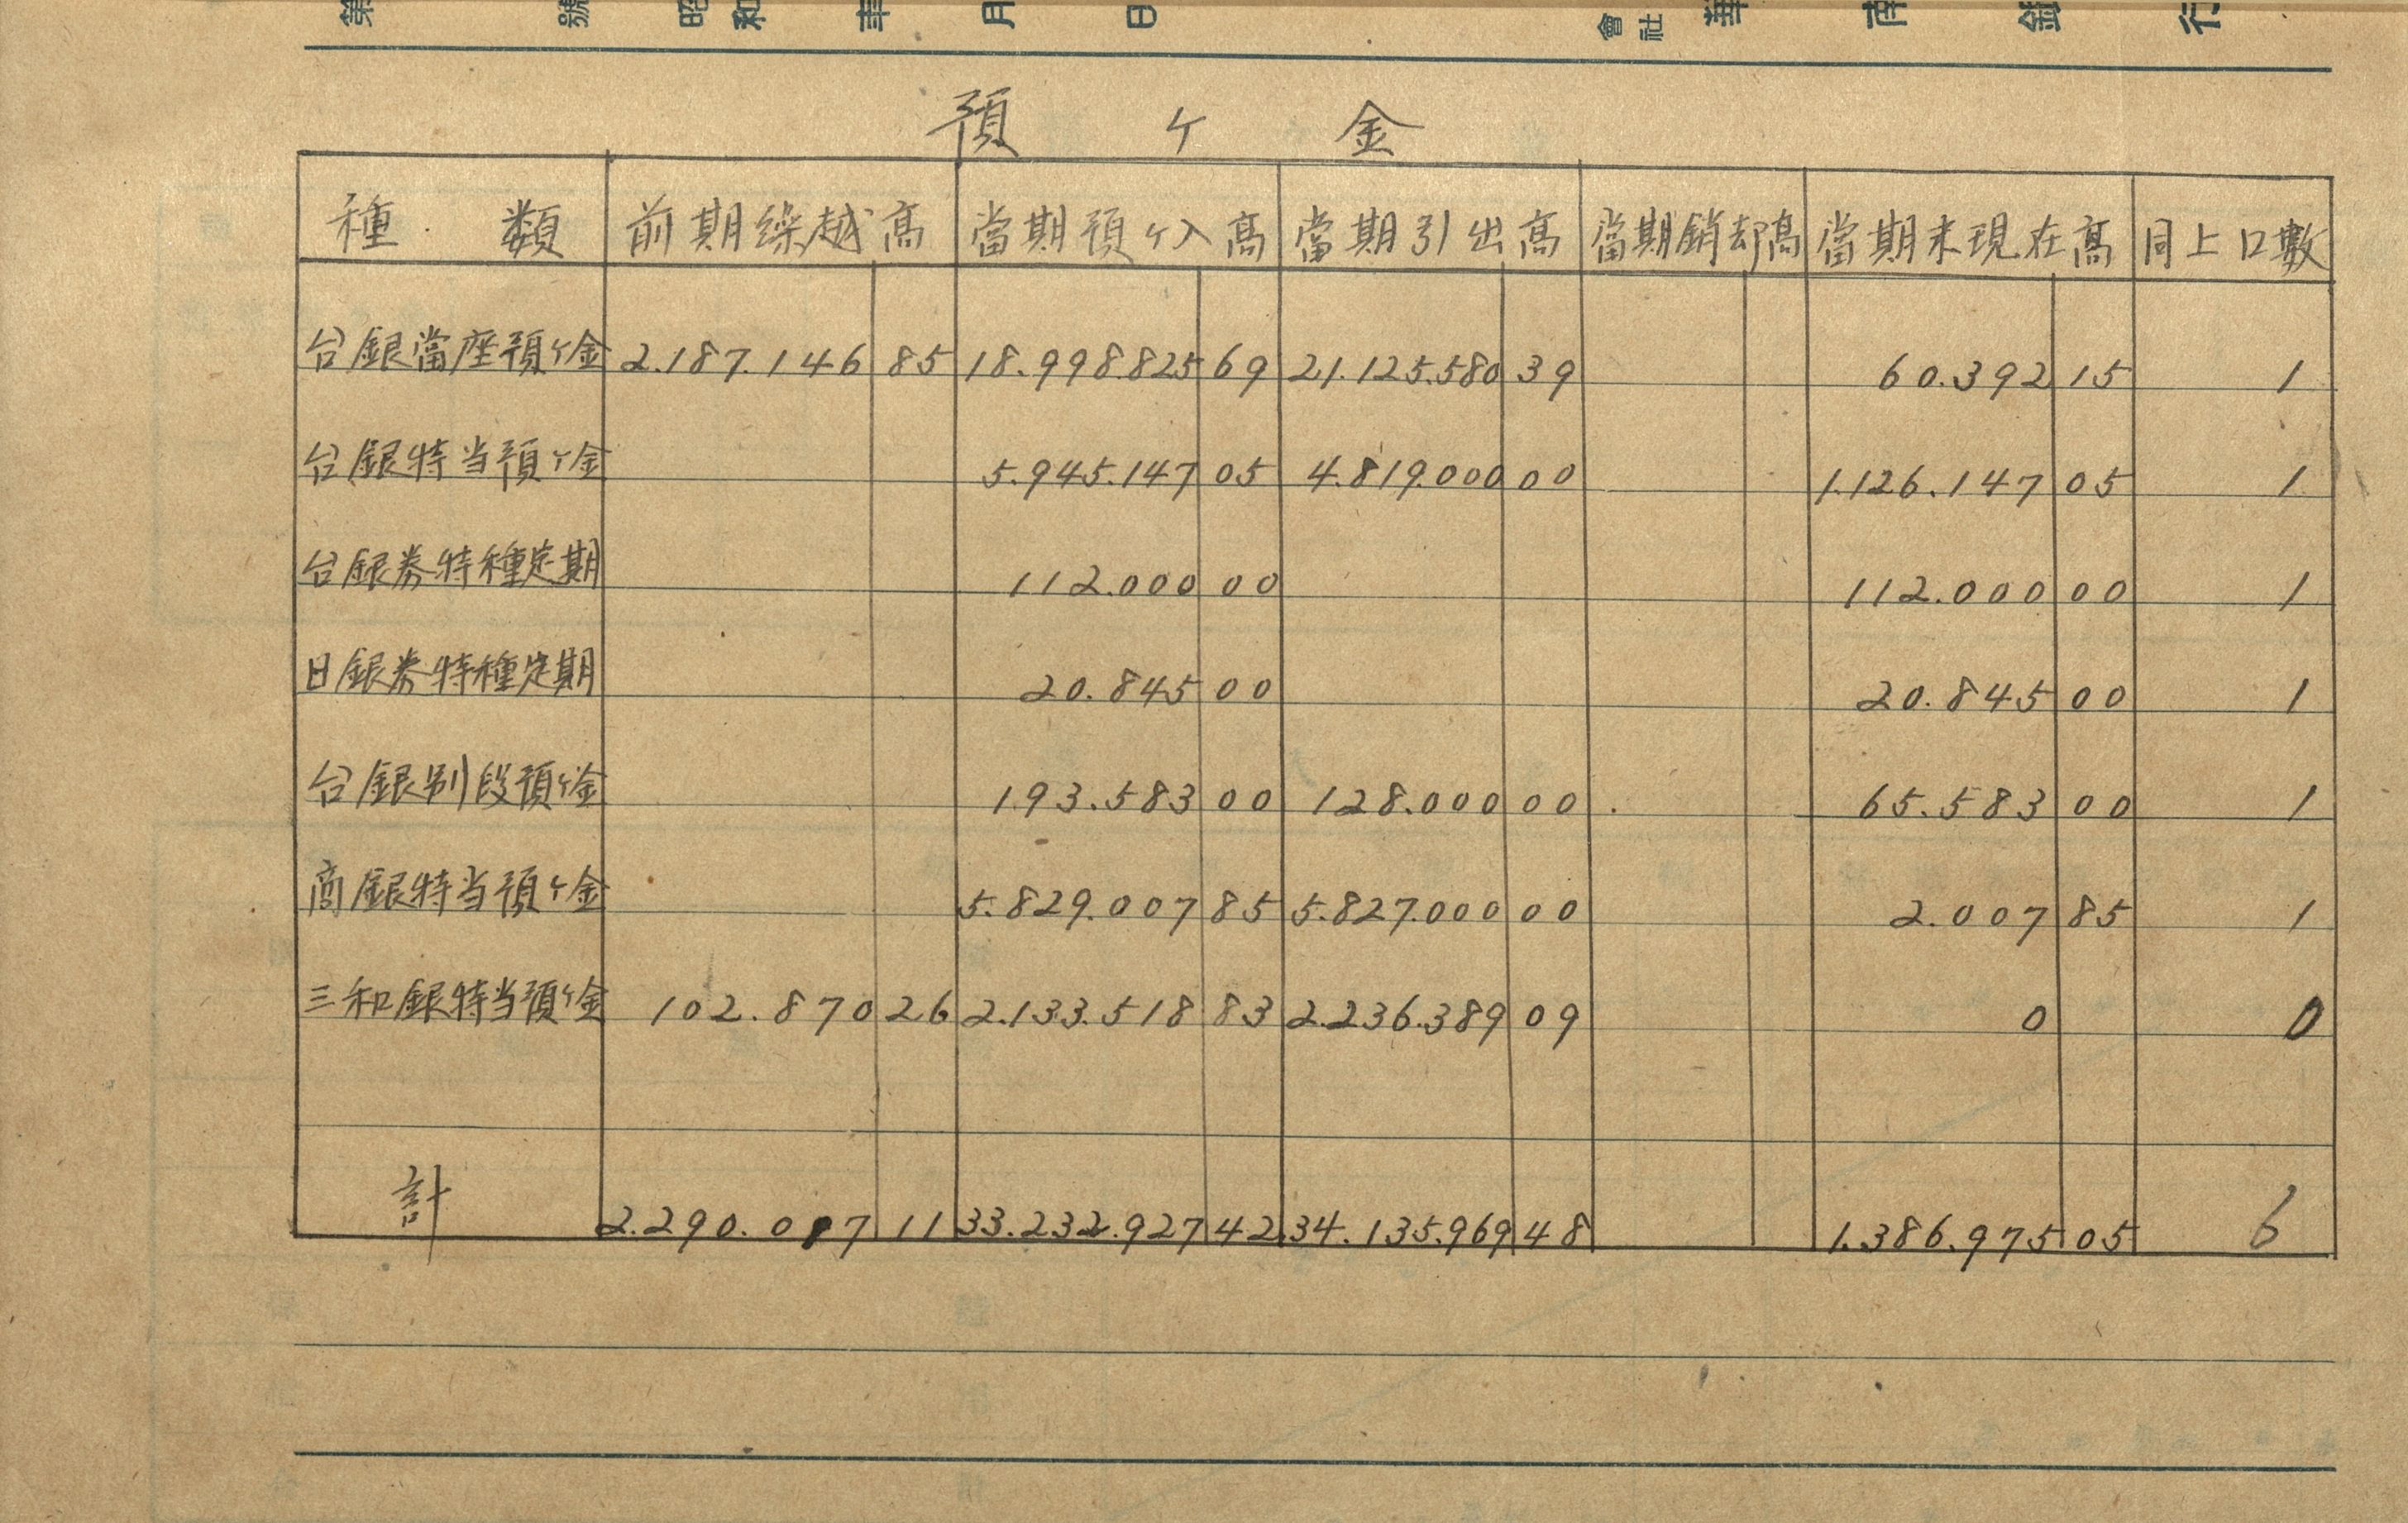 第 號 昭和 年 月 日 會社 華南銀行
預ケ金
種類 前期繰越高 當期預ケ入高 當期引出高 當期銷却高 當期末現在高 同上口數
台銀當座預ケ金 2.187.146 85 18.998.825 69 21.125.580 39 60.392 15 1
台銀特当預ケ金 5.945.147 05 4.819.000 00 1.126.147 05 1
台銀券特種定期 112.000 00 112.000 00 1
日銀券特種定期 20.845 00 20.845 00 1
台銀別段預ケ金 193.583 00 128.000 00 65.583 00 1
商銀特当預ケ金 5.829.007 85 5.827.000 00 2.007 85 1
三和銀特当預ケ金 102.870 26 2.133.518 83 2.236.389 09 0 0
計 2.290.017 11 33.232.927 42 34.135.969 48 1.386.975 05 6